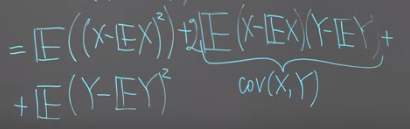 = 𝔼((X-𝔼X)²)+2𝔼(X-𝔼X)(Y-𝔼Y)+
cov(X,Y)
+ 𝔼(Y-𝔼Y)²